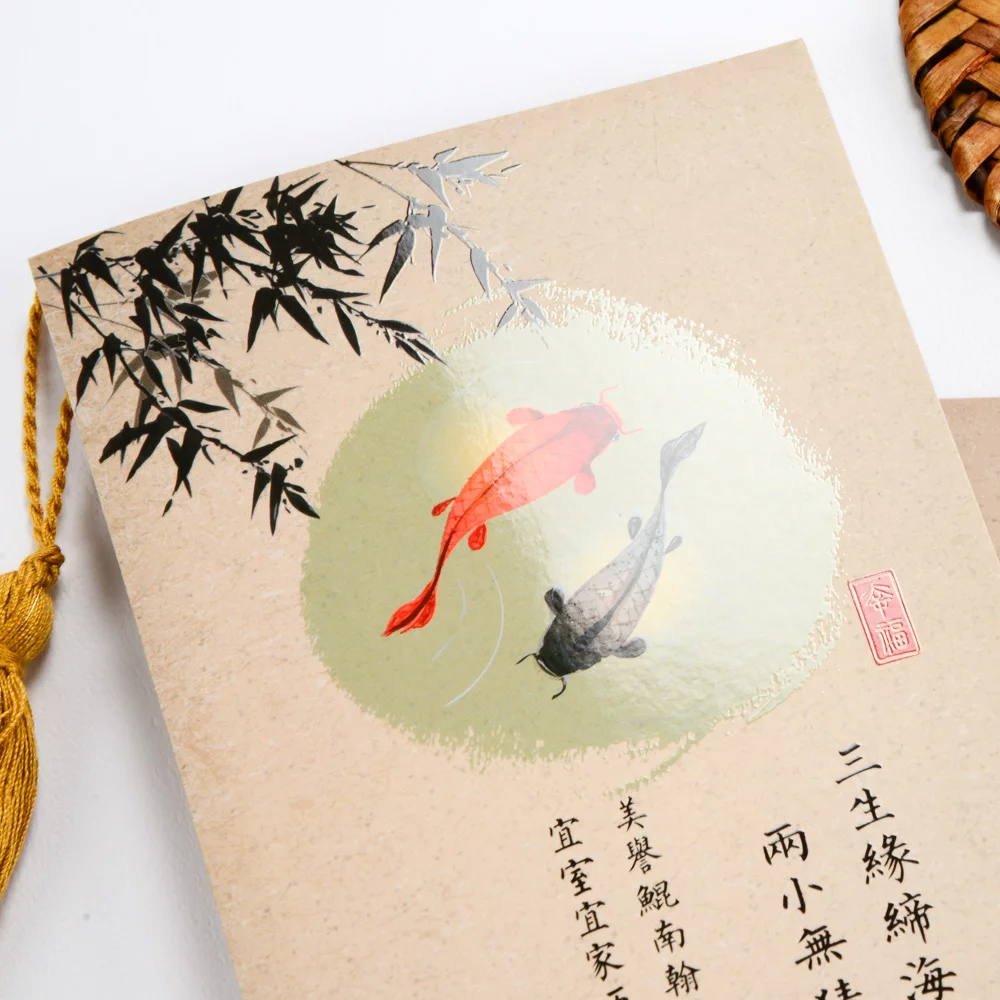 三生緣締海
兩小無
美譽鯤南翰
宜室宜家
幸福